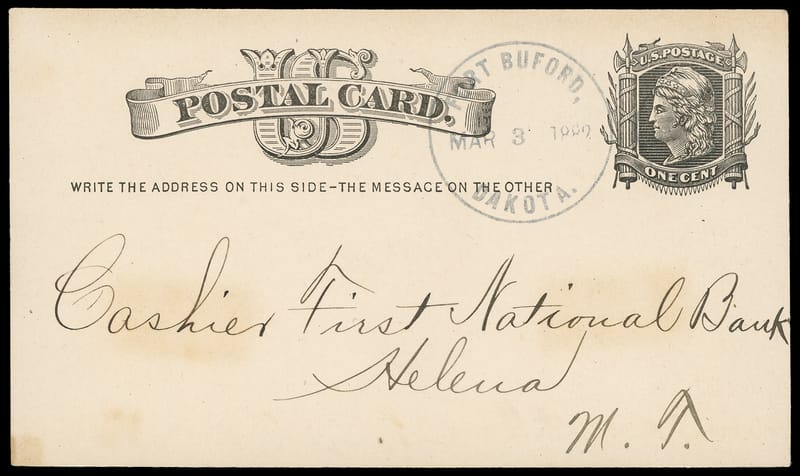 US
POSTAL CARD.
U.S. POSTAGE
ONE CENT
FORT BUFORD,
MAR 3 1882
DAKOTA.
WRITE THE ADDRESS ON THIS SIDE-THE MESSAGE ON THE OTHER
Cashier First National Bank
Helena
M. T.